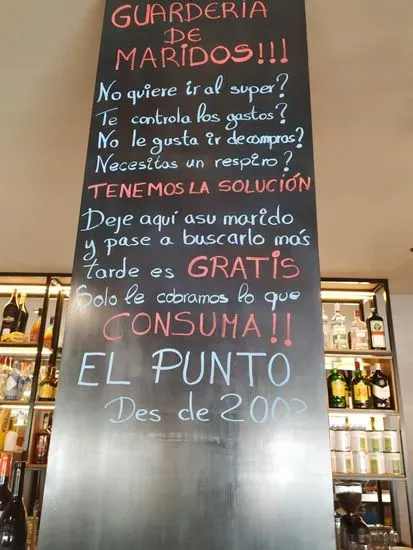 GUARDERÍA
DE
MARIDOS!!!
No quiere ir al super?
Te controla los gastos?
No le gusta ir de compras?
Necesitas un respiro?
TENEMOS LA SOLUCIÓN
Deje aquí asu marido
y pase a buscarlo más
tarde es GRATIS
Solo le cobramos lo que
CONSUMA!!
EL PUNTO
Des de